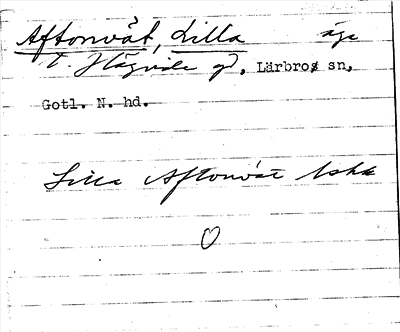 Aftonvät, Lilla äga
t. Hägvide gd, Lärbros sn,
Gotl. N. hd.
Lilla Aftonvät